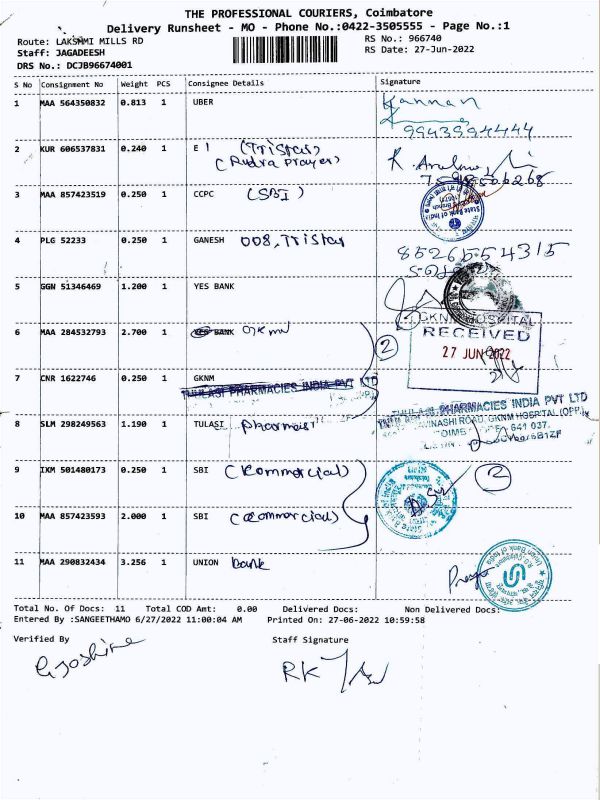 THE PROFESSIONAL COURIERS, Coimbatore
Delivery Runsheet - MO - Phone No.:0422-3505555 - Page No.:1
Route: LAKSHMI MILLS RD RS No.: 966740
Staff: JAGADEESH RS Date: 27-Jun-2022
DRS No.: DCJB96674001
S No Consignment No Weight PCS Consignee Details Signature
1 MAA 564350832 0.813 1 UBER Kannan
9943994444
2 KUR 606537831 0.240 1 E I (Tristar)
(Rudra Prayer)
3 MAA 857423519 0.250 1 CCPC (SBI)
State Bank of India
4 PLG 52233 0.250 1 GANESH 008, Tristar 8526554315
5 GGN 51346469 1.200 1 YES BANK
GKNM HOSPITAL
RECEIVED
27 JUN 2022
6 MAA 284532793 2.700 1 BANK
2
7 CNR 1622746 0.250 1 GKNM
TULASI PHARMACIES INDIA PVT LTD
TULASI PHARMACIES INDIA PVT LTD
AVINASHI ROAD, GKNM HOSPITAL (OPP.)
641 037.
8 SLM 298249563 1.190 1 TULASI
9 IXM 501480173 0.250 1 SBI (Commercial) 2
10 MAA 857423593 2.000 1 SBI (Commercial)
11 MAA 290832434 3.256 1 UNION Bank
Union Bank of India
Total No. Of Docs: 11 Total COD Amt: 0.00 Delivered Docs: Non Delivered Docs:
Entered By :SANGEETHAMO 6/27/2022 11:00:04 AM Printed On: 27-06-2022 10:59:58
Verified By Staff Signature
RK